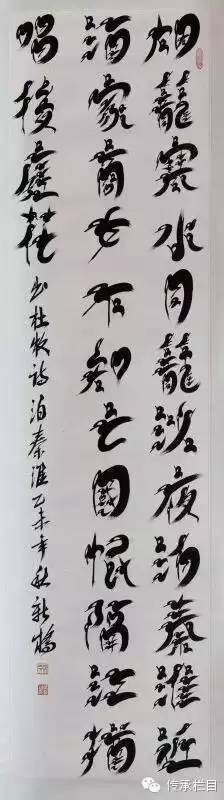 烟籠寒水月籠沙夜泊秦淮近
酒家商女不知亡國恨隔江猶
唱後庭花 书杜牧诗泊秦淮乙未年秋新
传承栏目